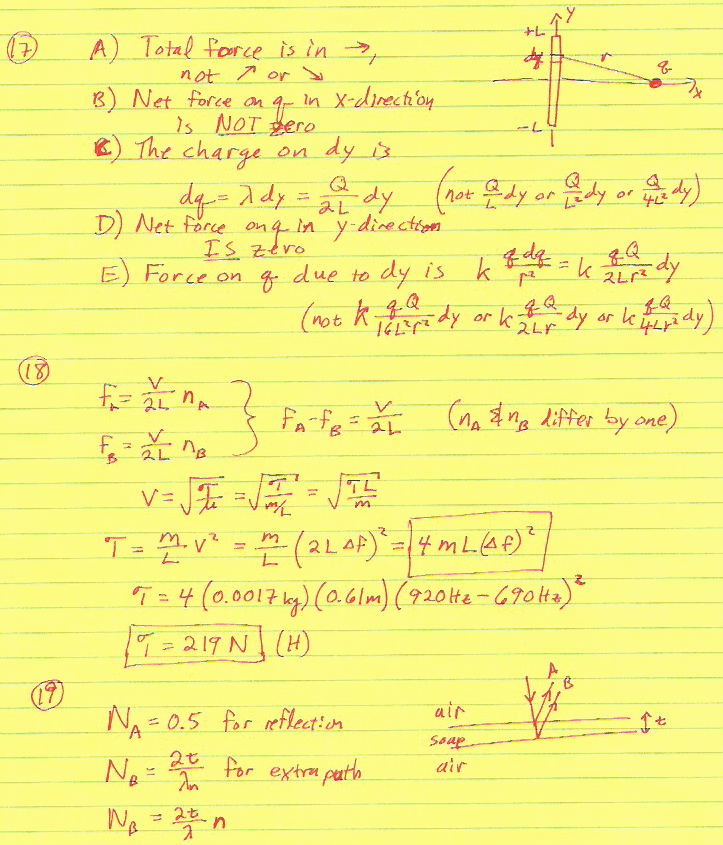 (17) A) Total force is in →,
not ↗ or ↘
B) Net force on q in x-direction
is NOT zero
C) The charge on dy is
dq = λ dy = Q/2L dy (not Q/L dy or Q/L² dy or Q/4L² dy)
D) Net force on q in y-direction
IS zero
E) Force on q due to dy is k q dq/r² = k qQ/2Lr² dy
(not k qQ/16L²r² dy or k qQ/2Lr dy or k qQ/4Lr² dy)
+L
y
dy
r
q
x
-L
(18)
f_A = V/2L n_A
f_B = V/2L n_B
f_A - f_B = V/2L (n_A & n_B differ by one)
V = √(T/μ) = √(T/(m/L)) = √(TL/m)
T = m/L V² = m/L (2LΔf)² = 4mL(Δf)²
T = 4(0.0017 kg)(0.61m)(920Hz - 690Hz)²
T = 219 N (H)
(19)
N_A = 0.5 for reflection
N_B = 2t/λn for extra path
N_B = 2t/λ n
A
B
air
soap
air
t